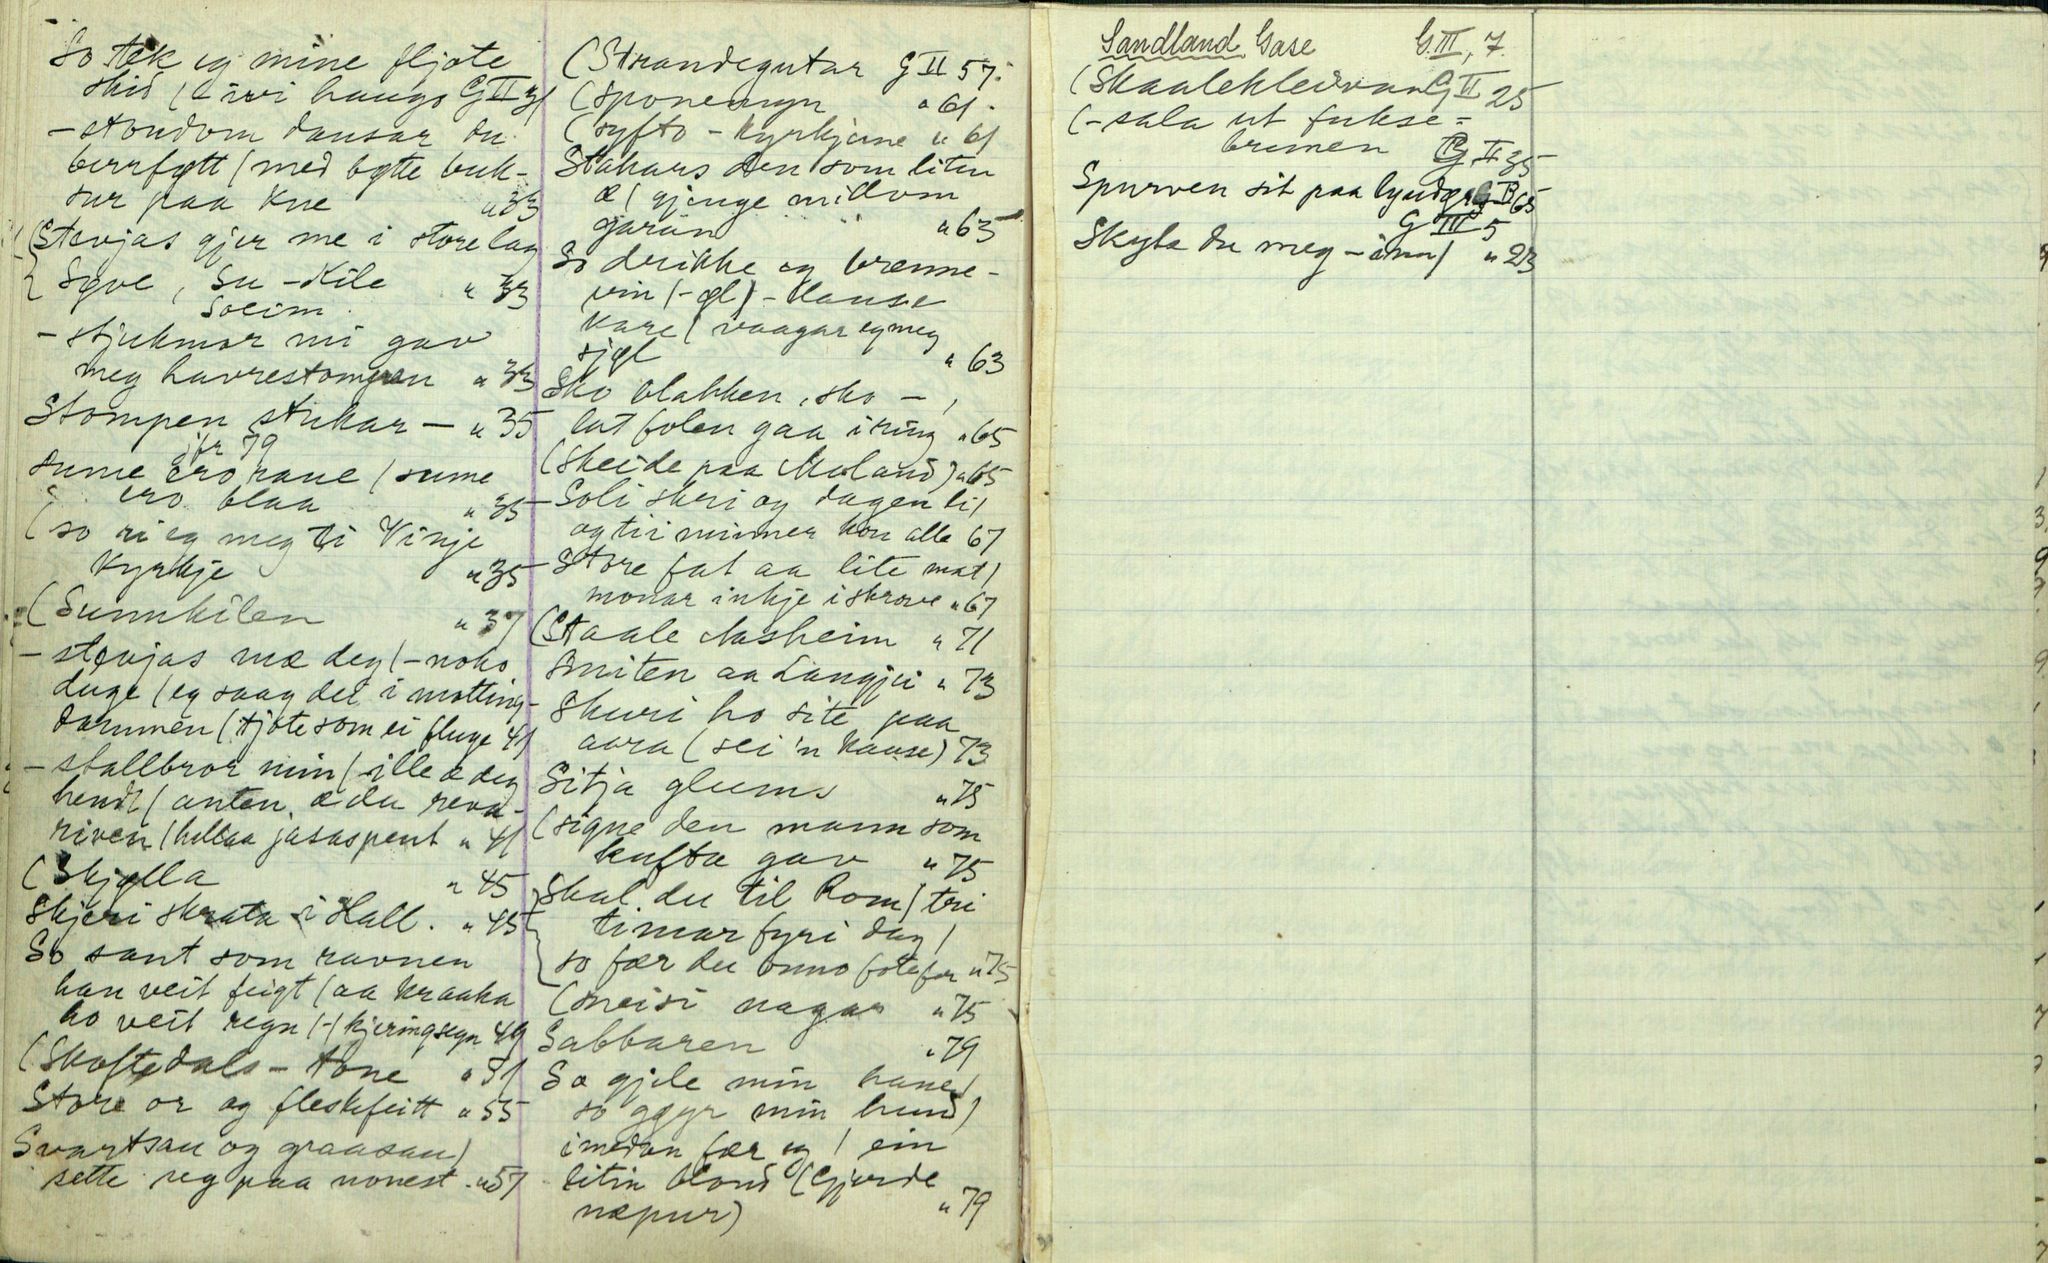 So tek eg mine fljote
skid / - ivi haugo G II 31
- stoudom dansar du
berrføtt / med bøtte buk-
sur paa kne " 33
(Stevjas gjer me i store lag
Søve, Su - Kile " 33
Soeim
- stjukmor mi gav
meg havrestompen " 33
Stompen stukar - " 35
jfr 79
sume ero kaue / sume
ero blaa " 35
(so ri eg meg ti Vinje
Kyrkje " 35
(Sunnkilen " 37
- stevjas mæ deg / - noko
duge / eg saag dei i
dammen / tjote som ei fluge 41
- stallbror min / ille æ deg
hendt / anten æ du reva-
riven / hellaa jasaspent " 41
(Skjølla " 45
Skjeri skrata i Hall. " 45
So sant som ravnen
han veit feigt / aa kraaka
ho veit regn / - / kjeringsegn 49
(Skoftedals - tone " 51
Store or og fleskfeitt " 55
Svartsau og graasau /
sette seg paa nonest. " 57
(Strandegutar G II 57.
(sponemyn " 61.
(syfto - kyrkjune " 61
Stakars den som liten
æ / gjenge millom
garan " 63
So drikke eg brenne-
vin / - øl) - Hause
kare / vaagar eg meg
sjøl " 63
Sko blakken, sko - ,
lat folen gaa i ring " 65
(Skeide paa Moland) " 65
- Soli skri og dagen li /
og tii minner kon alle 67
- Store fat aa lite mat /
monar inkje i skrove " 67
(Staale Aasheim " 71
Smiten aa Langjei " 73
Skuri ho site paa
aara (sei 'n Kause) 73
Sitja glums " 75
(signe den mann som
kufta gav " 75
Skal du til Rom / tri
timar fyri dag /
so fær du onno fotefar " 75
(sneisi nagar " 75
Sabbaren " 79
So gjele min hane /
so gøyr min hund /
imedan fær eg / ein
litin blond (Gjurde
næpur) " 79
Sandland Gase G. III, 7.
(Skaalekleivan G II 25
(- sala ut fukse=
brunen G II 35
Spurven sit paa lyndgren G II 65
G III 5
Skyta du meg - inn / " 23